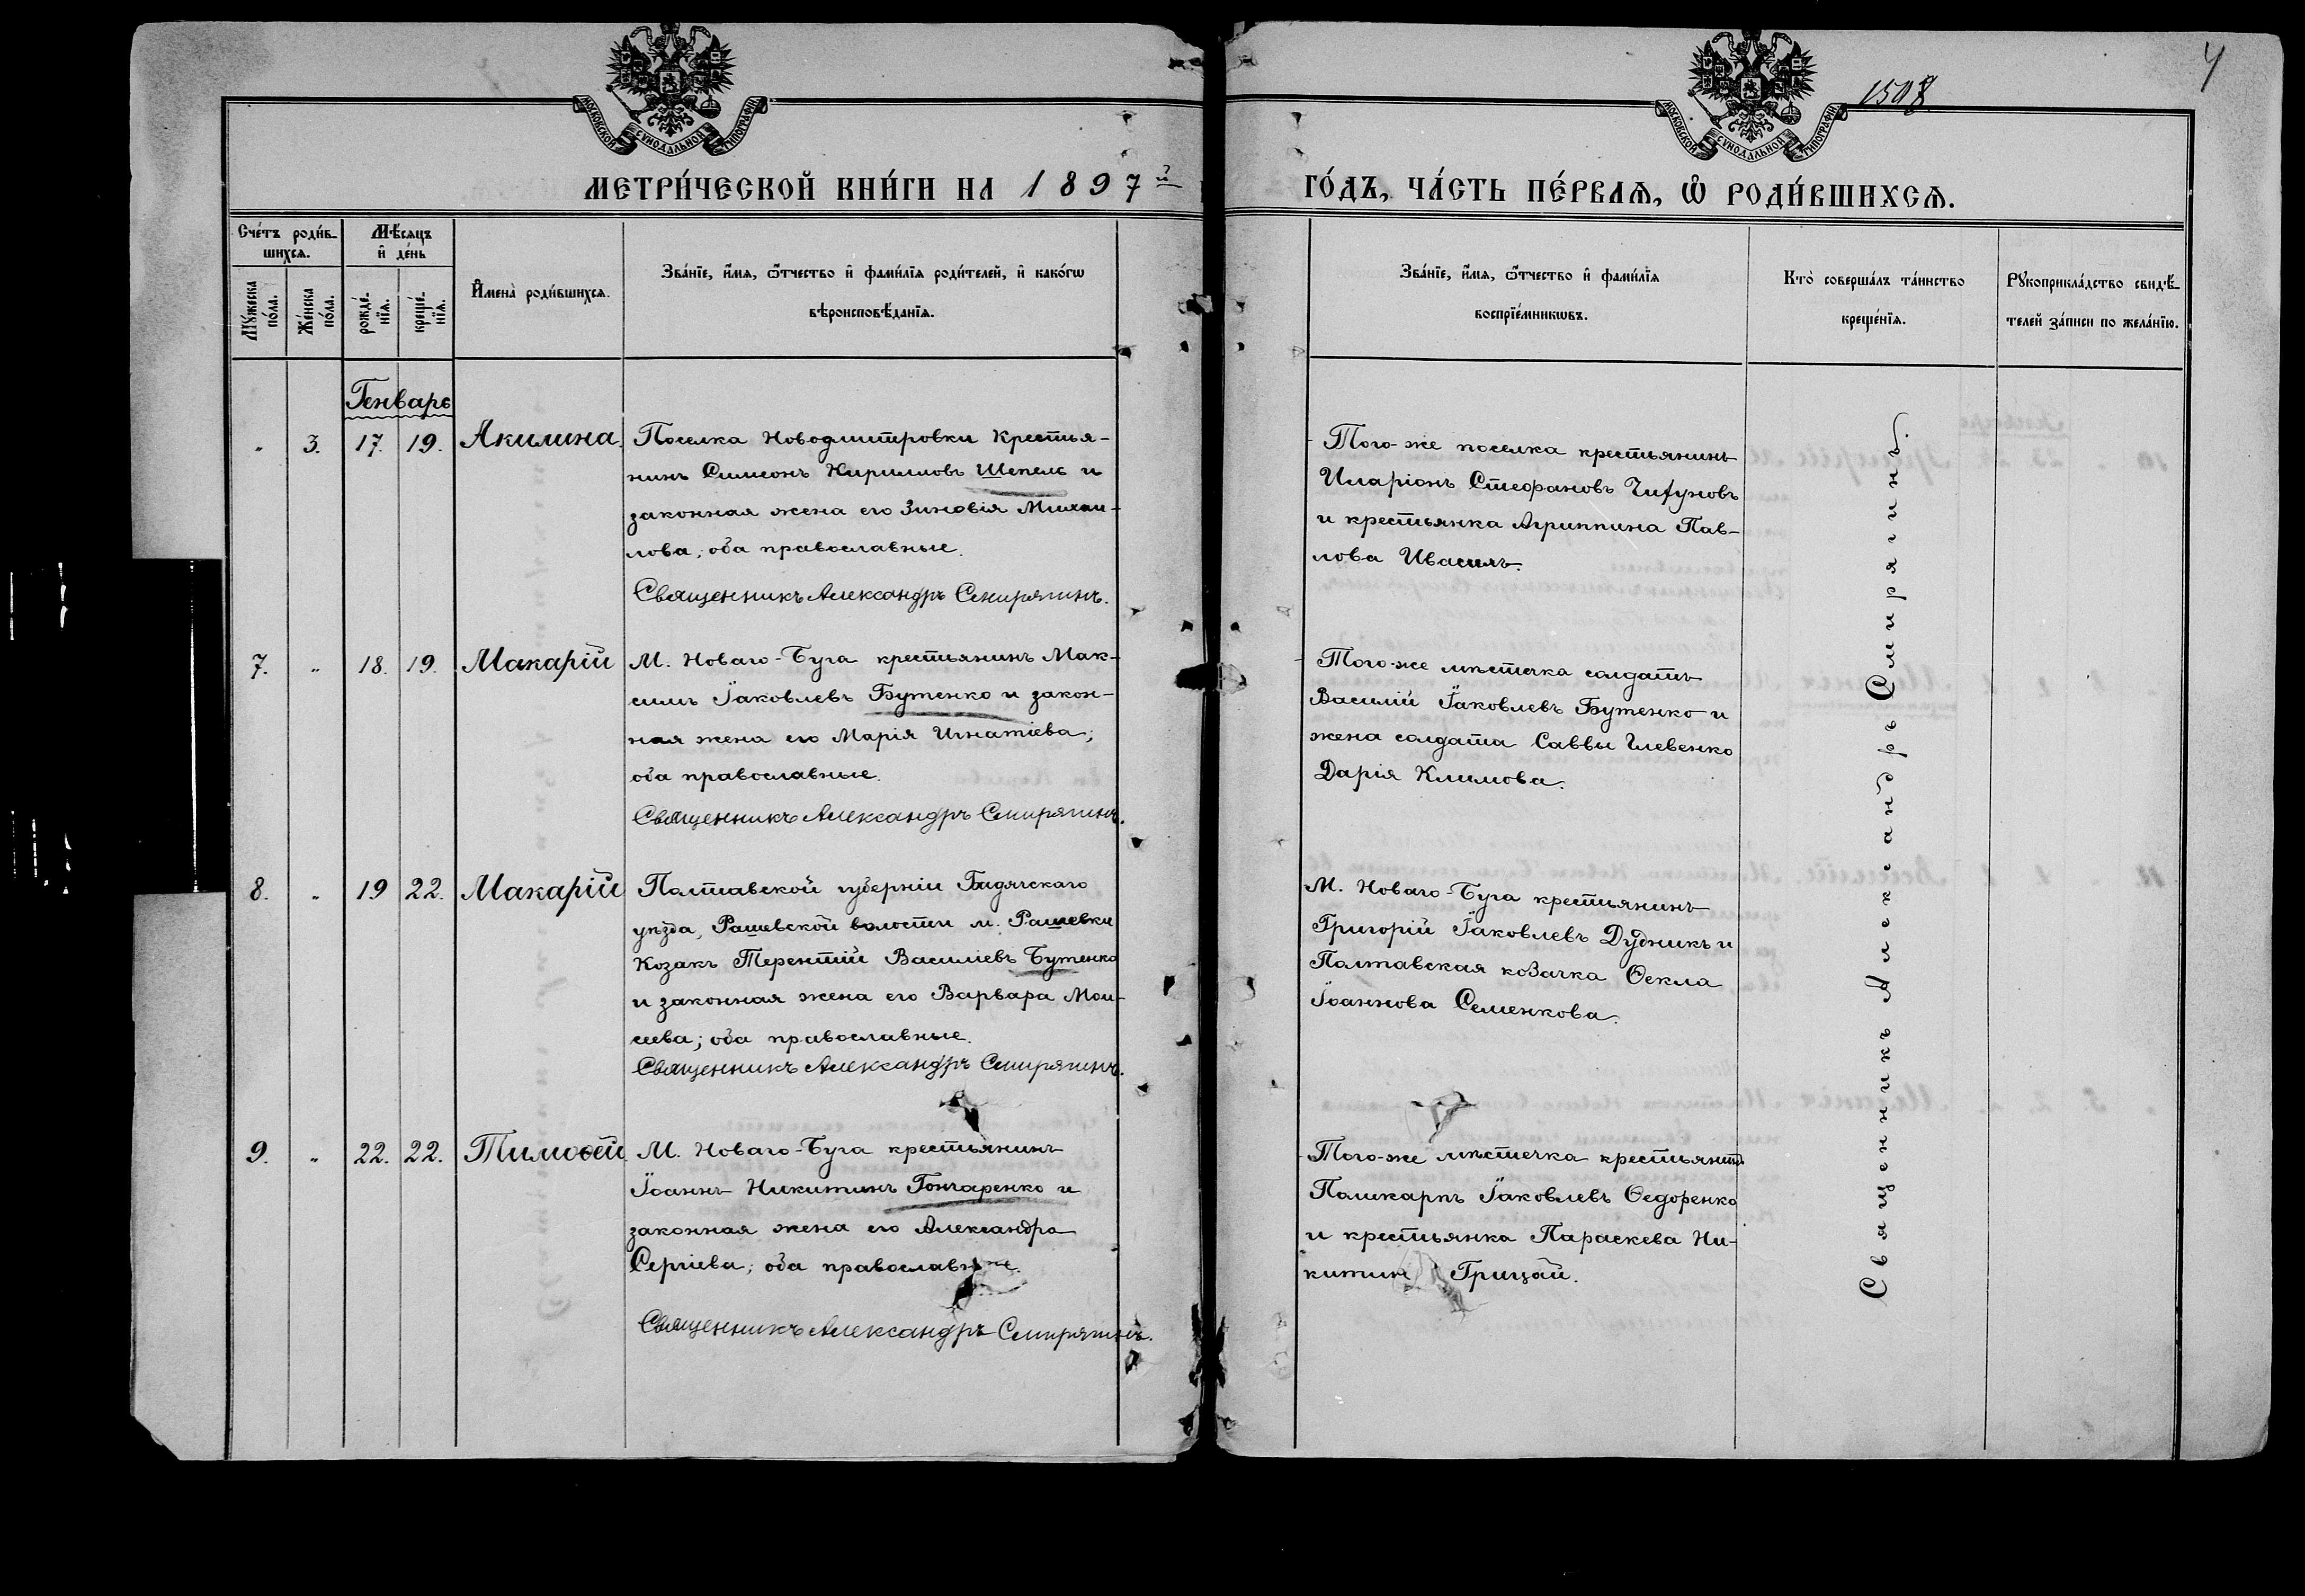 4
1508
МОСКОВСКОЙ СУНОДАЛЬНОЙ ТИПОГРАФІИ
МОСКОВСКОЙ СУНОДАЛЬНОЙ ТИПОГРАФІИ
МЕТРИ́ЧЕСКОЙ КНИ́ГИ НА 1897й
ГО́ДЪ, ЧА́СТЬ ПЕ́РВАѦ, Ѡ РОДИ́ВШИХСѦ.
Сче́тъ роди́в-
шихсѧ.
Мѣ́сѧцъ
и҆ де́нь
Му́жеска по́ла.
Же́нска по́ла.
рожде́-нїѧ.
креще́-нїѧ.
И҆мена̀ роди́вшихсѧ.
Зва́нїе, и҆́мѧ, ѻ҆́тчество и҆ фами́лїѧ роди́телей, и҆ како́гѡ
вѣроисповѣ́данїѧ.
Зва́нїе, и҆́мѧ, ѻ҆́тчество и҆ фами́лїѧ
воспрїе́мникѡвъ.
Кто̀ соверша́лъ та́инство
креще́нїѧ.
Рꙋкоприкла́дство свидѣ́-
телей за́писи по жела́нїю.
Генварь
„ 3. 17. 19. Акилина.
Поселка Новодмитровки Крестья-
нинъ Симеонъ Кирилловъ Шепель и
законная жена его Зиновія Михаи-
лова; оба православные.
Священникъ Александръ Смирягинъ.
Того-же поселка крестьянинъ
Иларіонъ Стефановъ
и крестьянка Агриппина Пав-
лова
7. „ 18. 19. Макарій
М. Новаго-Буга крестьянинъ Мак-
симъ Іаковлевъ Бутенко и закон-
ная жена его Марія Игнатіева;
оба православные.
Священникъ Александръ Смирягинъ.
Того-же мѣстечка солдатъ
Василій Іаковлевъ Бутенко и
жена солдата Саввы
Дарія Климова.
8. „ 19 22. Макарій
Полтавской губерніи Гадячскаго
уѣзда, Рашевской волости м. Рашевки
Козакъ Терентій Василіевъ Бутенко
и законная жена его Варвара Мои-
сеева; оба православные.
Священникъ Александръ Смирягинъ.
М. Новаго-Буга крестьянинъ
Григорій Іаковлевъ Дудникъ и
Полтавская козачка Ѳекла
Іоаннова Семенкова.
9. „ 22. 22. Тимоѳей
М. Новаго-Буга крестьянинъ
Іоаннъ Никитинъ Гончаренко и
законная жена его Александра
Сергіева; оба православные.
Священникъ Александръ Смирягинъ.
Того-же мѣстечка крестьянинъ
Поликарпъ Іаковлевъ Ѳедоренко
и крестьянка Параскева Ни-
китин Грицай.
Священникъ Александръ Смирягинъ.